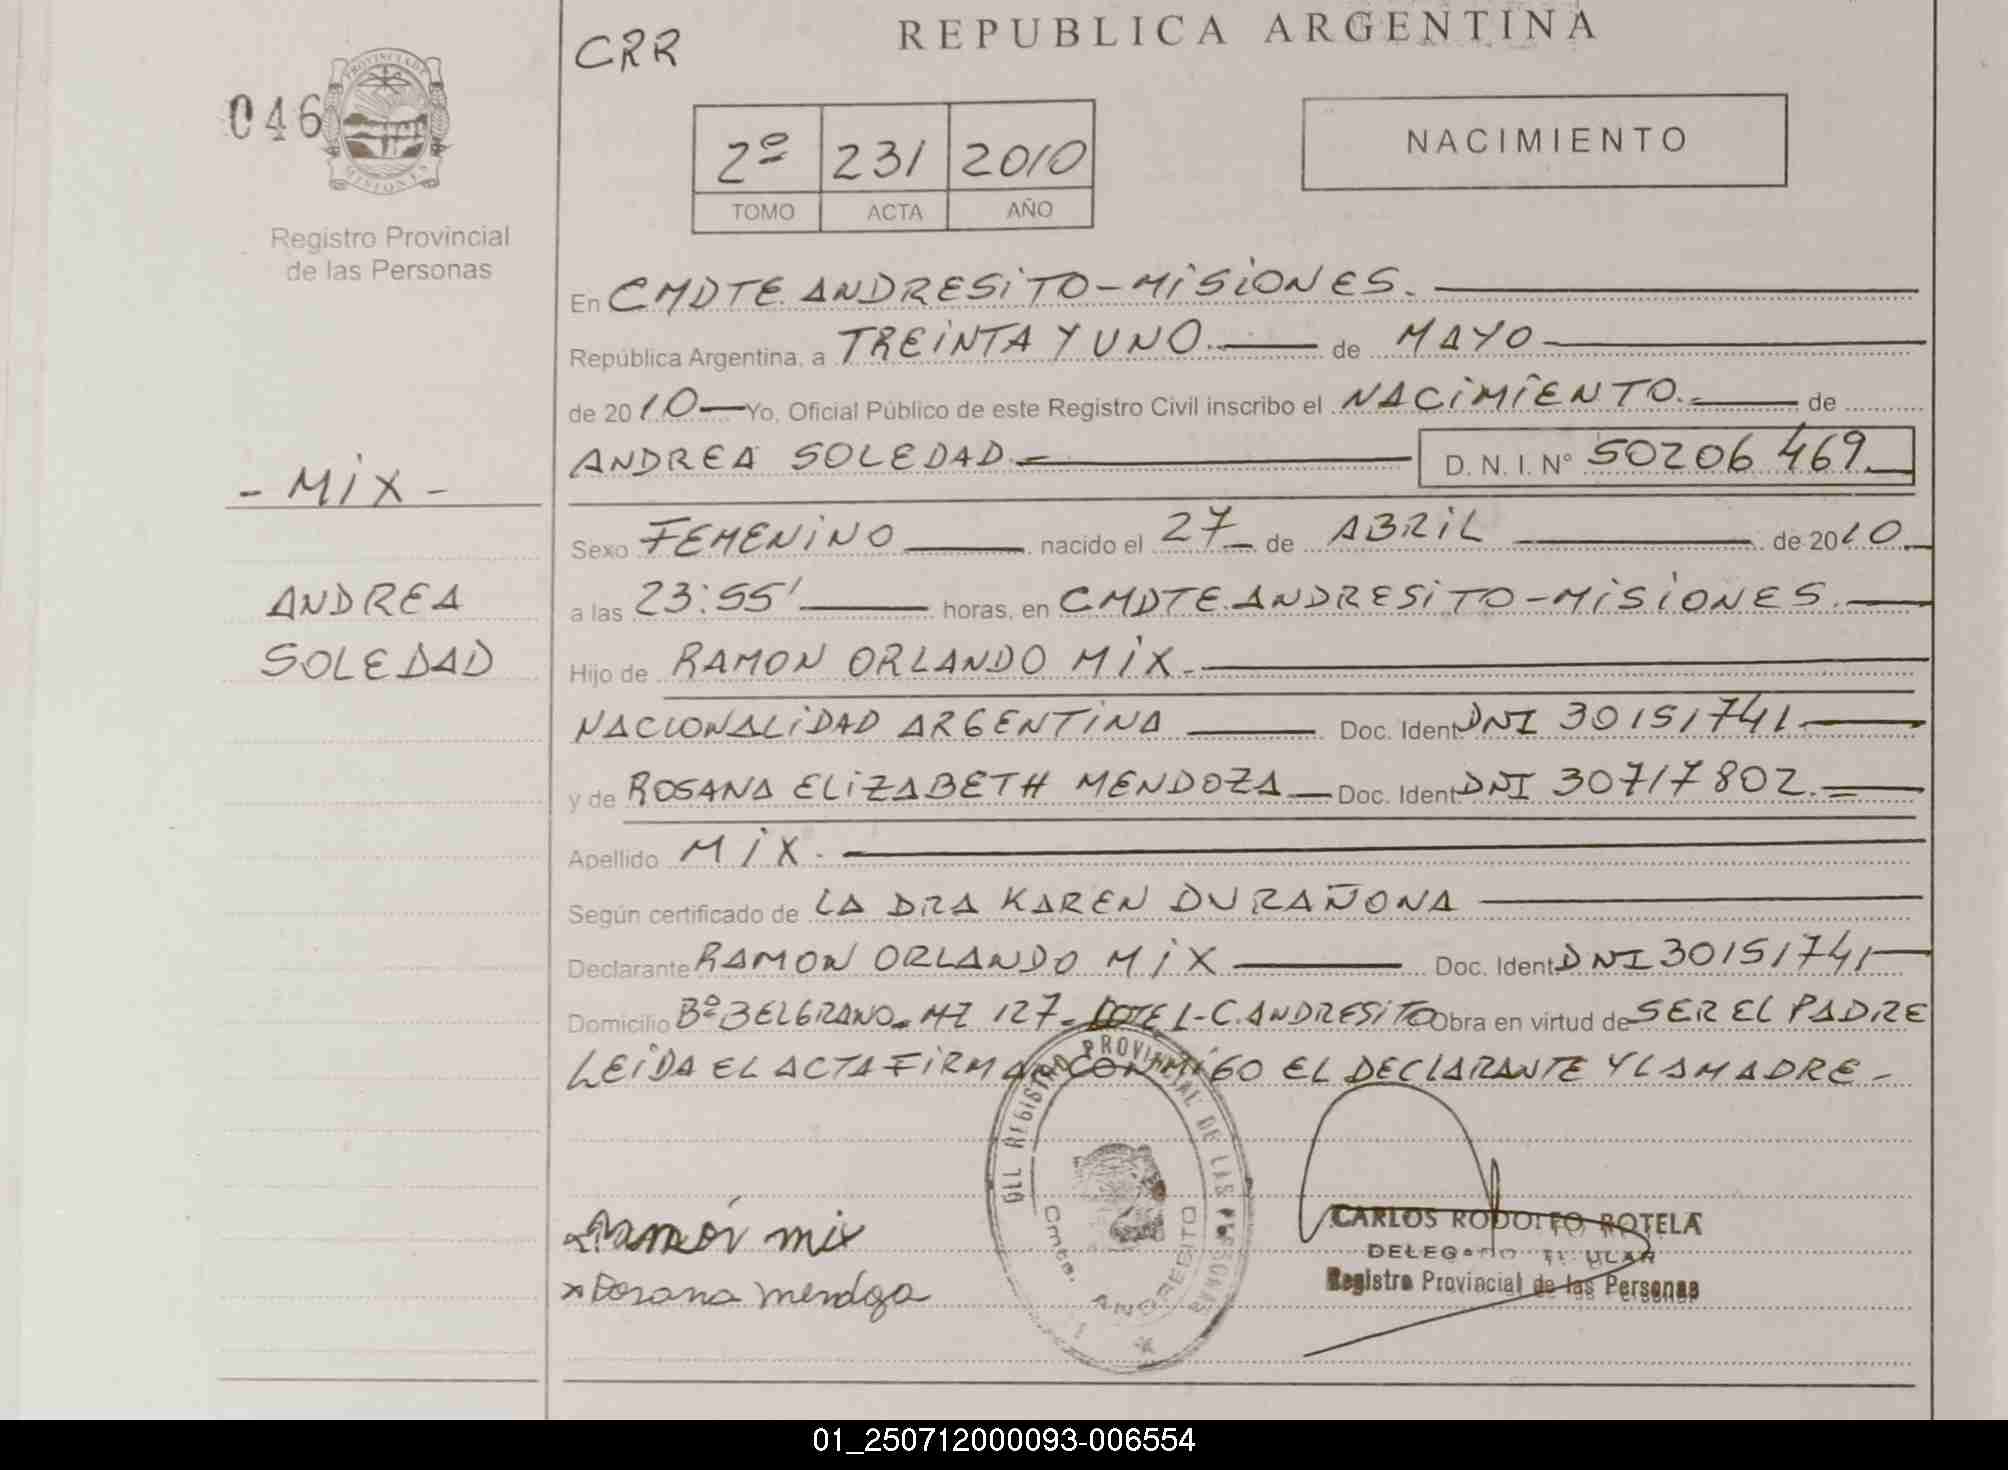 REPUBLICA ARGENTINA
CRR
046
PROVINCIA DE MISIONES
Registro Provincial
de las Personas
2º 231 2010
TOMO ACTA AÑO
NACIMIENTO
En CMDTE ANDRESITO-MISIONES.
República Argentina, a TREINTA Y UNO de MAYO
de 2010 Yo, Oficial Público de este Registro Civil inscribo el NACIMIENTO. de
ANDREA SOLEDAD D. N. I. Nº 50206469
- MIX -
Sexo FEMENINO nacido el 27 de ABRIL de 2010
ANDREA
SOLEDAD
a las 23:55' horas, en CMDTE ANDRESITO-MISIONES.
Hijo de RAMON ORLANDO MIX.
NACIONALIDAD ARGENTINA Doc. Ident DNI 30151741
y de ROSANA ELIZABETH MENDOZA Doc. Ident DNI 30717802.
Apellido MIX.
Según certificado de LA DRA KAREN DURAÑONA
Declarante RAMON ORLANDO MIX Doc. Ident DNI 30151741
Domicilio Bº BELGRANO-MZ 127- LOTE 1-C.ANDRESITO Obra en virtud de SER EL PADRE
LEIDA EL ACTA FIRMAN CONMIGO EL DECLARANTE Y LA MADRE-
REGISTRO PROVINCIAL DE LAS PERSONAS
Cmte. ANDRESITO
x Ramón mix
x Rosana mendoza
CARLOS RODOLFO ROTELA
DELEGADO TITULAR
Registro Provincial de las Personas
01_250712000093-006554